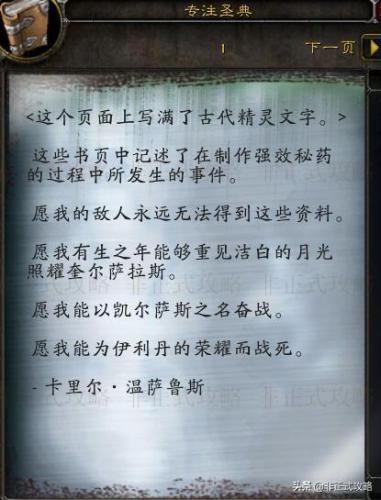 专注圣典
1
下一页
<这个页面上写满了古代精灵文字。>
这些书页中记述了在制作强效秘药
的过程中所发生的事件。
愿我的敌人永远无法得到这些资料。
愿我有生之年能够重见洁白的月光
照耀奎尔萨拉斯。
愿我能以凯尔萨斯之名奋战。
愿我能为伊利丹的荣耀而战死。
- 卡里尔·温萨鲁斯
头条 @非正式攻略